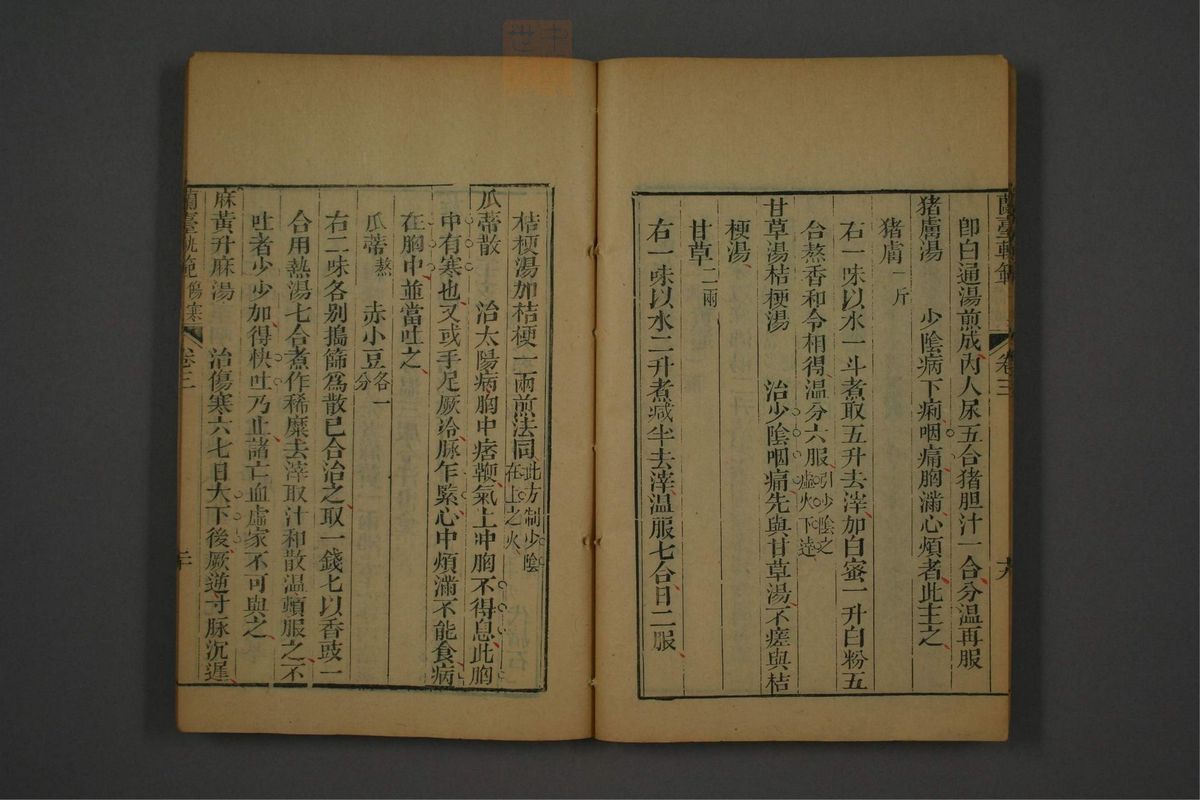 蘭臺軌範 卷三 十九
卽白通湯煎成內人尿五合猪胆汁一合分溫再服
猪膚湯 少陰病下痢咽痛胸滿心煩者此主之
猪膚一斤
右一味以水一斗煮取五升去滓加白蜜一升白粉五
合熬香和令相得溫分六服引少陰之虛火下達
甘草湯桔梗湯 治少陰咽痛先與甘草湯不瘥與桔
梗湯
甘草二兩
右一味以水二升煮減半去滓溫服七合日二服
桔梗湯加桔梗一兩煎法同此方制少陰在上之火
瓜蒂散 治太陽病胸中痞鞕氣上冲胸不得息此胸
中有寒也又或手足厥冷脉乍緊心中煩滿不能食病
在胸中並當吐之
瓜蒂熬 赤小豆各一分
右二味各別搗篩爲散已合治之取一錢匕以香豉一
合用熱湯七合煮作稀糜去滓取汁和散溫頓服之不
吐者少少加得快吐乃止諸亡血虛家不可與之
麻黃升麻湯 治傷寒六七日大下後厥逆寸脉沉遲
蘭臺軌範 傷寒 卷三 二十